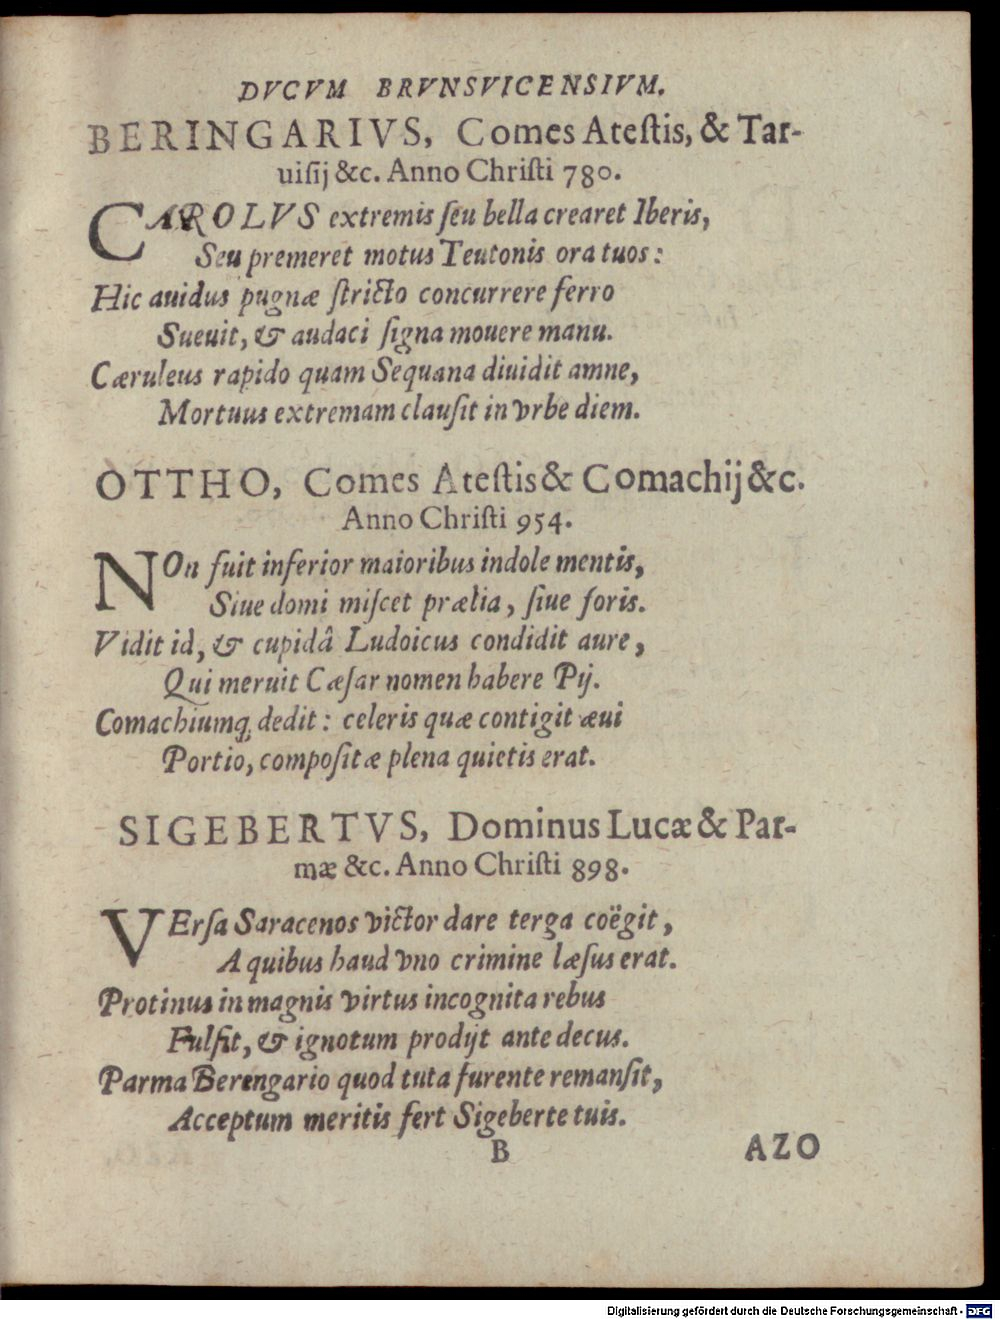 DVCVM BRVNSVICENSIVM.
BERINGARIVS, Comes Ateſtis, & Tar-
uiſij &c. Anno Chriſti 780.
CAROLVS extremis ſeu bella crearet Iberis,
Seu premeret motus Teutonis ora tuos:
Hic auidus pugnæ ſtricto concurrere ferro
Sueuit, & audaci ſigna mouere manu.
Cæruleus rapido quam Sequana diuidit amne,
Mortuus extremam clauſit in vrbe diem.
OTTHO, Comes Ateſtis & Comachij &c.
Anno Chriſti 954.
NOn fuit inferior maioribus indole mentis,
Siue domi miſcet prælia, ſiue foris.
Vidit id, & cupidâ Ludoicus condidit aure,
Qui meruit Cæſar nomen habere Pij.
Comachiumq; dedit: celeris quæ contigit æui
Portio, compoſitæ plena quietis erat.
SIGEBERTVS, Dominus Lucæ & Par-
mæ &c. Anno Chriſti 898.
VErſa Saracenos victor dare terga coëgit,
A quibus haud vno crimine læſus erat.
Protinus in magnis virtus incognita rebus
Fulſit, & ignotum prodijt ante decus.
Parma Berengario quod tuta furente remanſit,
Acceptum meritis fert Sigeberte tuis.
B AZO
Digitalisierung gefördert durch die Deutsche Forschungsgemeinschaft - DFG